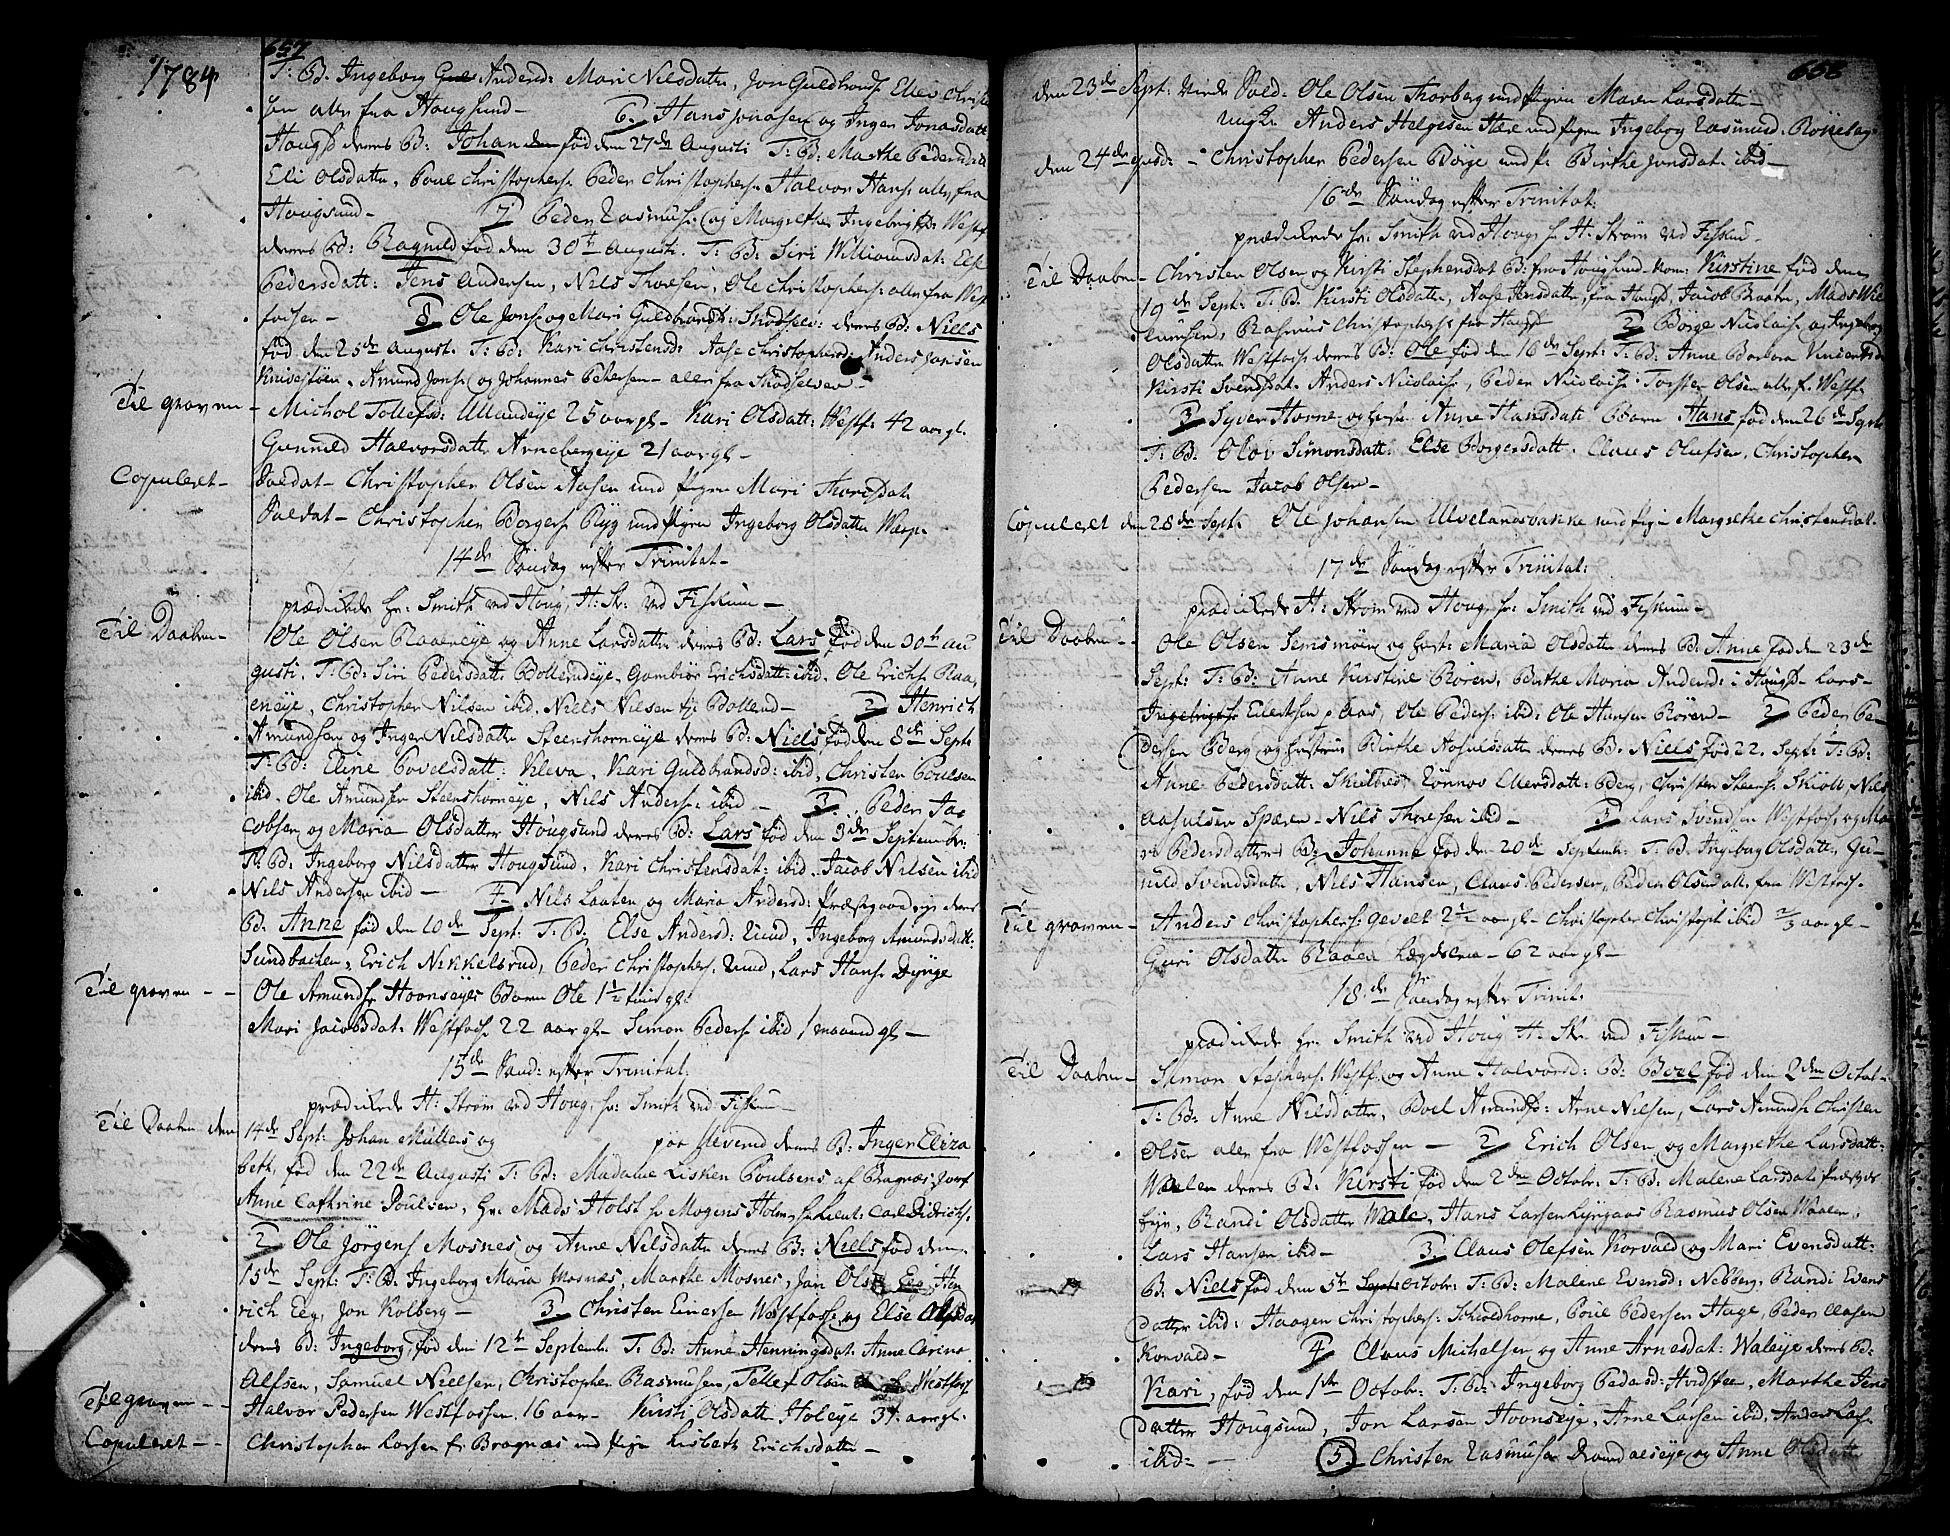 1784
657
T: B: Ingeborg Andersd: Mari Nilsdatter, Jon Guldbrands: Ellev Christo
sen alle fra Hougsund –
6. Hans Jonasen og Inger Jonasdatt
Hougs: deres B: Johan fød den 27de Augusti T: B: Marthe Pedersdatt
Eli Olsdatter, Poul Christophers: Peder Christophers: Halvor Hans: alle fra
Hougsund –
7 Peder Rasmus: og Margrethe Ingebrigtsd: Westf:
deres B: Ragnild fød den 30te Augusti. T: B: Siri Williomsdat: Else
Pedersdatt: Jens Andersen, Nils Thoresen, Ole Christophers: alle fra West
fossen –
8 Ole Jonse og Mari Guldbrandsd: Skodselv: deres B: Niels
fød den 25de August. T: B: Kari Christensd: Aase Christophersd: Anders Jonsen
Amund Jons: og Johannes Pettersen – alle fra Skodselven –
Til graven –
Michel Tollefs: Ullandeye 25 aar gl – Kari Olsdatt: Westf: 42 aar gl.
Gunnild Halvorsdatter Arnebergeye 21 aar gl –
Copuleret –
Soldat – Christopher Olsen Aasen med Pigen Mari Thorisdat:
Soldat – Christopher Borgers: Ryg med pigen Ingeborg Olsdatter Warp.
14de Søndag efter Trinitat –
prædikede Hr: Smith ved Houg, H: Str: ved Fiskum –
Til Daaben –
Ole Olsen Raaeneye og Anne Larsdatter deres B: Lars fød den 30te Au
gusti. T: B: Siri Pedersdatter Bollerudeye, Gambiør Erichsdatt: ibid, Ole Erichs: Raa,
eneye, Christopher Nilsen ibid. Niels Nilsen Bollerud –
2 Henrich
Amundsen og Inger Nilsdatter Steenshorneye deres B: Niels fød den 8de Septr
T: B: Eline Povelsdatt: Kleva, Kari Guldbrandsd: ibid, Christen Poulsen
ibid, Ole Amundsen Steenshorneye, Nils Anders: ibid –
3. Peder Ja
cobsen og Maria Olsdatter Hougsund deres B: Lars fød den 3de September:
T: B: Ingeborg Nilsdatter Hougsund, Kari Christensdat: ibid, Jacob Nilsen ibid
Nils Andersen ibid –
4 Nils Laaten og Maria Andersd: Præstegaardseje deres
B: Anne fød den 10de Sept: T: B: Else Andersd: Ruud, Ingeborg Amundsdatt:
Sundbacken, Erich Nikkelsrud, Peder Christophers: Ruud, Lars Hans: Dynge
Til graven – –
Ole Amunds: Hoonseyes Barn Ole 1½ time gl:
Mari Jacobsdat: Westfoss: 22 aar gl – Simon Peders: ibid 1 maaned gl –
15de Sønd: efter Trinitat:
prædikede H: Strøm ved Houg, Hr: Smith ved Fiskum –
Til Daaben den
14de Sept: Johan Müllers og paa Ulverud deres B: Inger Eliza
beth, fød den 22de Augusti T: B: Madame Lisken Poulsens af Bragnæs, Jomf
Anne Cathrine Poulsen, Hr: Mads Holst Hr: Mogens Holm, Hr: Lieut: Carl Didrichs:
2 Ole Jörgens: Mosnes og Anne Nilsdatter deres B: Niels fød den
15de Sept: T: B: Ingeborg Maria Mosnæs, Marthe Mosnes, Jan Olsen Eeg, Hen
rich Eeg, Jon Kolberg –
3 Christen Einersen Westfosse, og Else Olsdat
deres B: Ingeborg, fød den 12te Septemb: T: B: Anne Henningsdat: Anne Carine
Alfsen, Samuel Nielsen, Christopher Rasmussen, Tellef Olsen Westfos
Til graven – –
Halvor Pedersen Westfossen 16 aar – Kirsti Olsdatter Holeye 37 aar gl.
Copuleret – –
Christopher Larsen fr: Bragnæs med pige Lisbeth Erichsdatter –
658
den 23de Sept: Ole Olsen Thorberg med pigen Maren Larsdatter –
Anders Helgesen med pigen Ingeborg Rasmusd:
den 24de – Christopher Pedersen Börje med p: Birthe Jonsdat: ibid –
16de Søndag efter Trinitat:
prædikede Hr: Smith ved Houg Hr H: Strøm ved Fiskum –
Til Daaben –
Christen Olsen og Kirsti Stephensdat B: fra Hougsund – Nom: Kirstine fød den
19de Sept: T: B: Kirsti Olsdatter, Aase Jensdatter, fra Hougs Jacob Braaten, Mads Wil
lumsen, Rasmus Christophers: fra Hougs
2 Börge Nicolais: og Ingeborg
Olsdatter Westfoss: deres B: Ole fød den 16de Sept: T: B: Anne Barbara Vincentsd:
Kirsti Svendsdat: Anders Nicolais:, Peder Nicolais: Torsten Olsen alle f: Westf.
3 Syver Horne og Anne Hansdatt Barn Hans fød den 26de Septr
T: B: Olov Simonsdatt: Else Borgersdatt. Claus Olufsen, Christopher
Pedersen Jacob Olsen –
Copuleret den 28de Sept:
Ole Johansen Ulvelandsvakke med pige Margrethe Christensdat.
17de Søndag efter Trinitat:
prædikede H: Strøm ved Houg, Hr: Smith ved Fiskum –
Til Daaben –
Ole Olsen Semsmoen og hust: Maria Olsdatter deres B: Anne fød den 23de
Sept: T: B: Anne Kirstine Roren, Birthe Maria Andersd: i Hougs – Lars
Ingebrigts: Eilertsen p Aas, Ole Peders: ibid: Ole Hansen Roren –
2 Peder Pe
dersen Berg og hustrue Birthe Aasulsdatter deres B. Niels fød 22. Sept: T: B:
Anne Pedersdatt: Skilbred, Rönnov Ullersdatt: Berg, Christen Steens: Skiöll, Nils
Aasulsen Spæren – Nils Thoresen ibid –
3 Lars Svendsen Westfoss, og Ma
ri Pedersdatters B: Johanne fød den 20de Septemb: T: B: Ingebor Olsdatter, Gu
nild Svendsdatter, Nils Hansen, Claus Pedersen, Peder Olsen all: fra Westfos.
Til graven –
Anders Christophers: Gevelt 2½ aar gl – Christopher Christoph: ibid ⅔ aar gl –
Guri Olsdatter Raaen Lægdslem – 62 aar gl –
18de Søndag efter Trinit:
prædikede Hr: Smith ved Houg H: Str: ved Fiskum –
Til Daaben –
Samon Stephens: Westf: og Anne Halvorsd: B: Boel fød den 2den Octobr
T: B: Anne Nilsdatter, Boel Amundsd: Arne Nilsen, Lars Amunds: Christen
Olsen alle fra Westfossen –
2 Erich Olsen og Margrethe Larsdatt:
Waalen deres B: Kirsti fød den 2den Octobr: T: B: Malene Larsdat:
Randi Olsdatter Wale, Hans Larsen Rasmus Olsen Waalen,
Lars Hansen ibid –
3 Claus Olefsen Korvald og Mari Evensdatt:
B: Niels fød den 5te Sept Octobr: T: B: Malene Evensd: Nebberg, Randi Evens
datter ibid: Haagen Christophers: Skieldhorne, Poul Pedersen Hage, Peder Clasen
Korvald –
4 Claus Michelsen og Anne Arnesdat: Waleye deres B:
Kari, fød den 1de Octobr: T: B: Ingeborg Pedersd: Hvidsteen, Marthe Jens
datter Hougsund, Jon Larsen Hoonseye, Arne Larsen ibid, Anders Lars:
ibid: – –
5 Christen Rasmusen og Anne Olsdatter